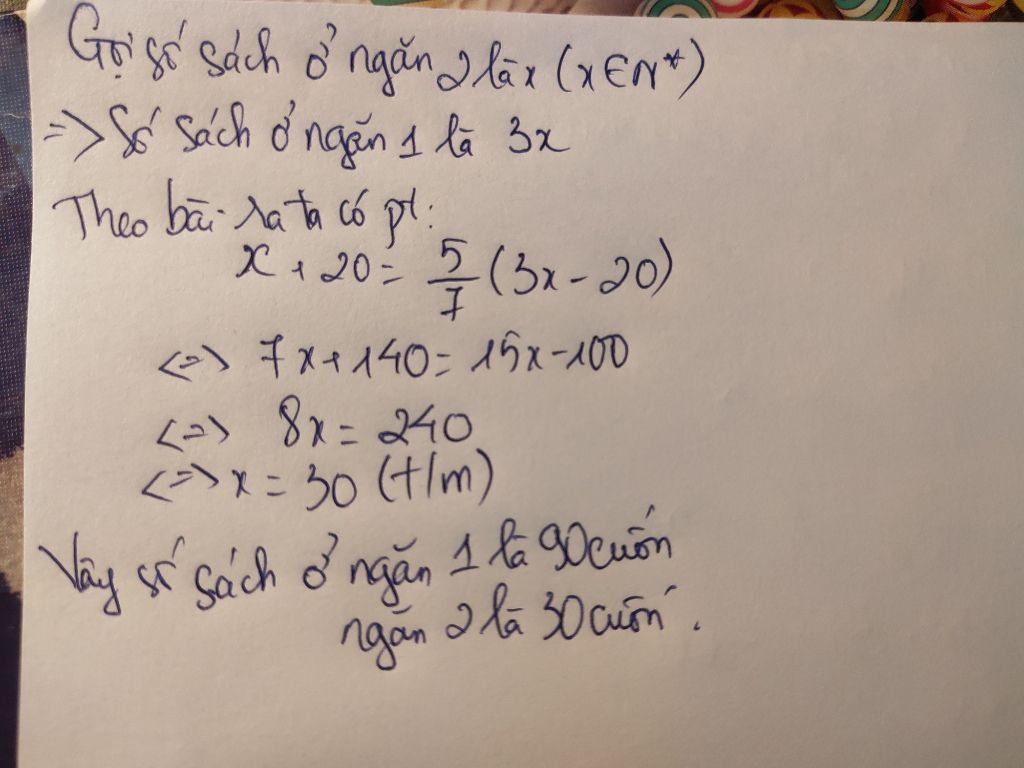 Gọi số sách ở ngăn 2 là x (x ∈ N*)
=> Số sách ở ngăn 1 là 3x
Theo bài ra ta có pt:
x + 20 = 5/7 (3x - 20)
<=> 7x + 140 = 15x - 100
<=> 8x = 240
<=> x = 30 (t/m)
Vậy số sách ở ngăn 1 là 90 cuốn
ngăn 2 là 30 cuốn.